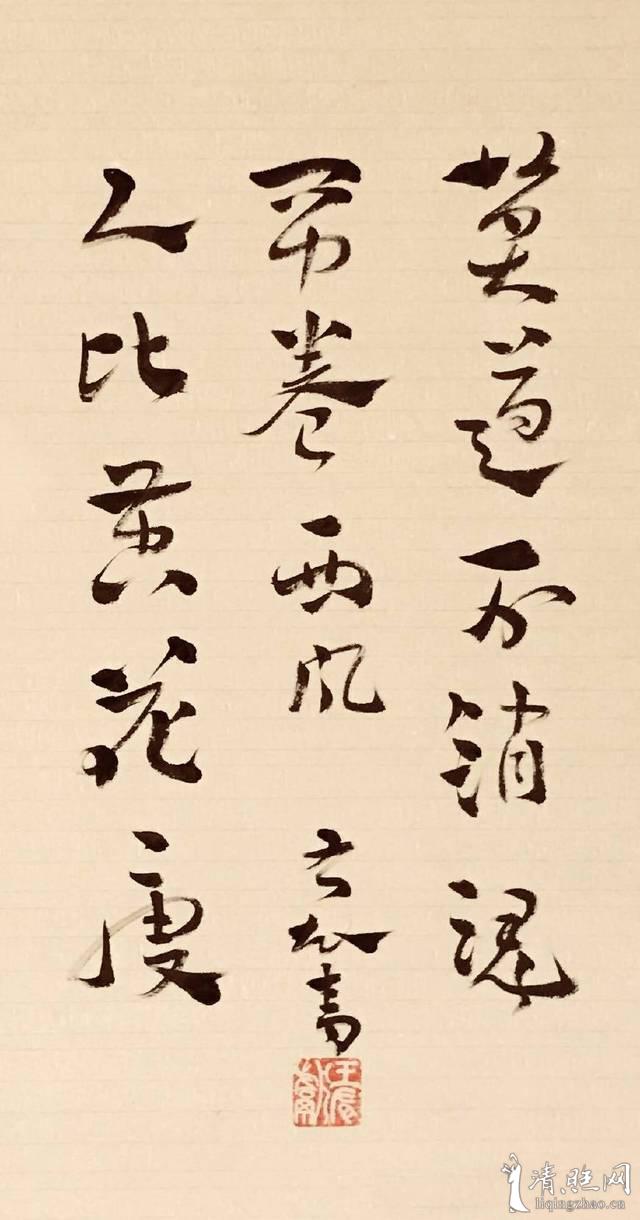 莫道不销魂
帘卷西风
人比黄花瘦
書
清照网
liqingzhao.cn